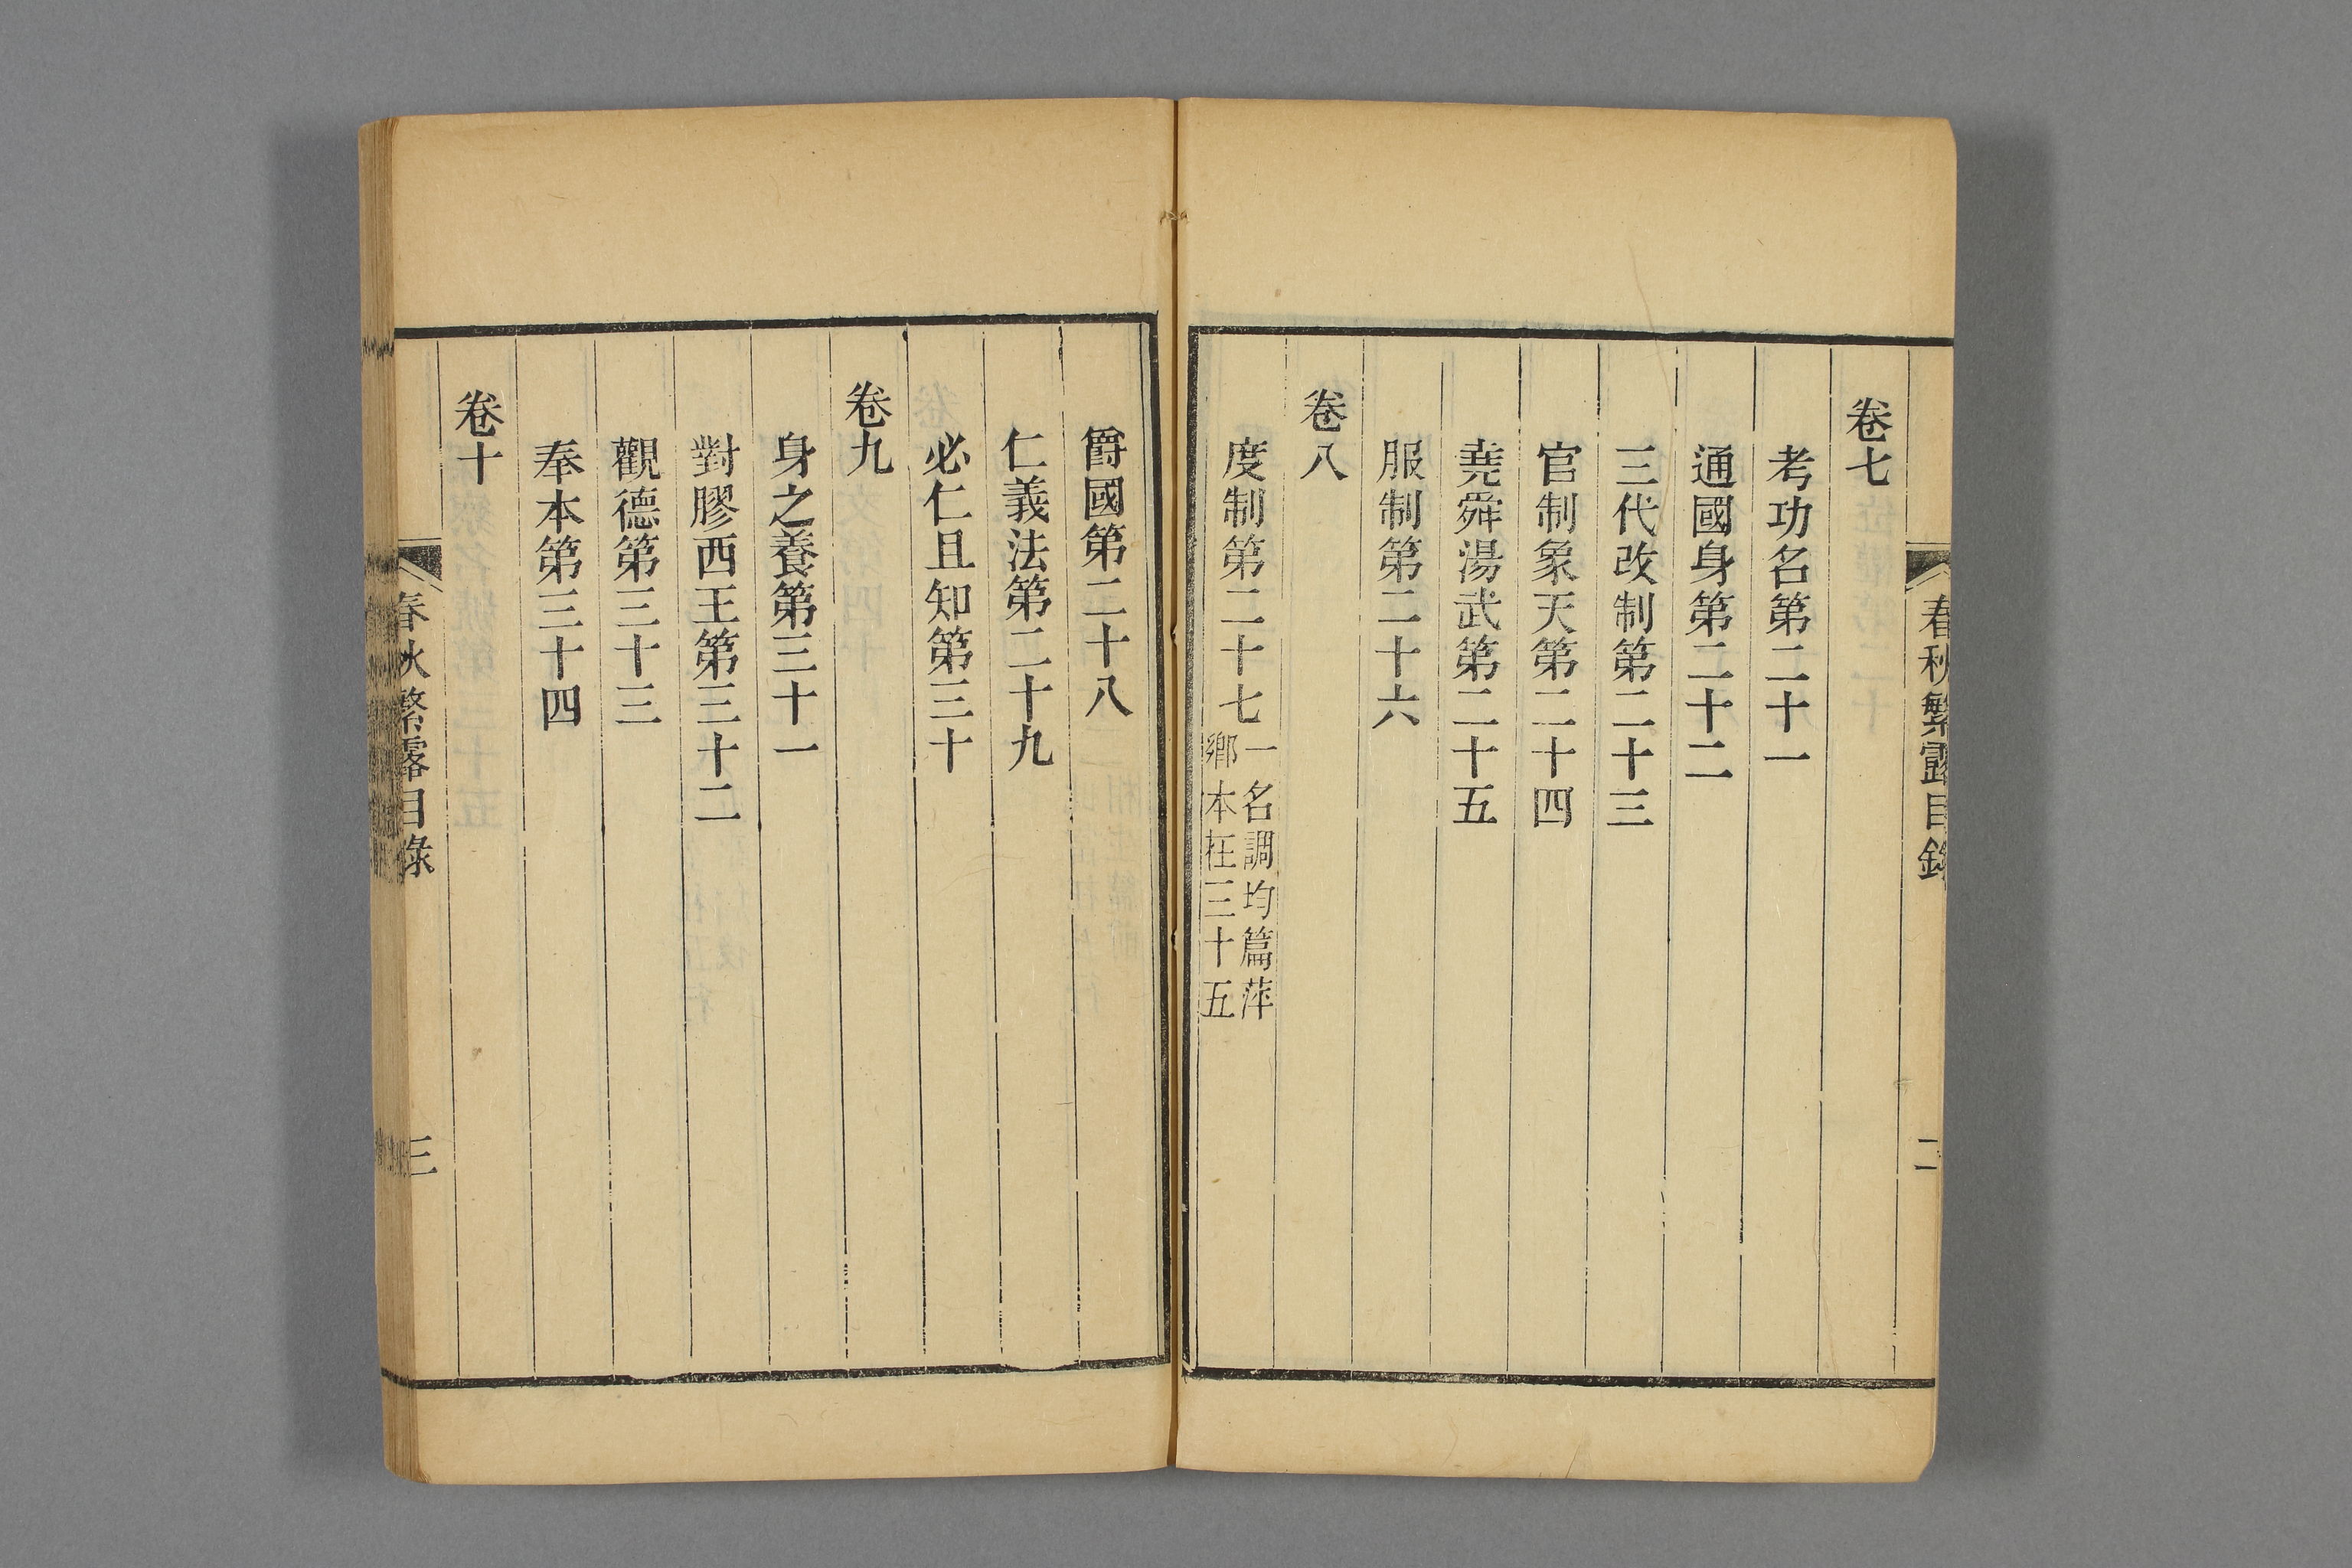 春秋繁露目錄
二
卷七
考功名第二十一
通國身第二十二
三代改制第二十三
官制象天第二十四
堯舜湯武第二十五
服制第二十六
卷八
度制第二十七一名調均篇萍
鄉本在三十五
爵國第二十八
仁義法第二十九
必仁且知第三十
卷九
身之養第三十一
對膠西王第三十二
觀德第三十三
奉本第三十四
卷十
春秋繁露目錄
三